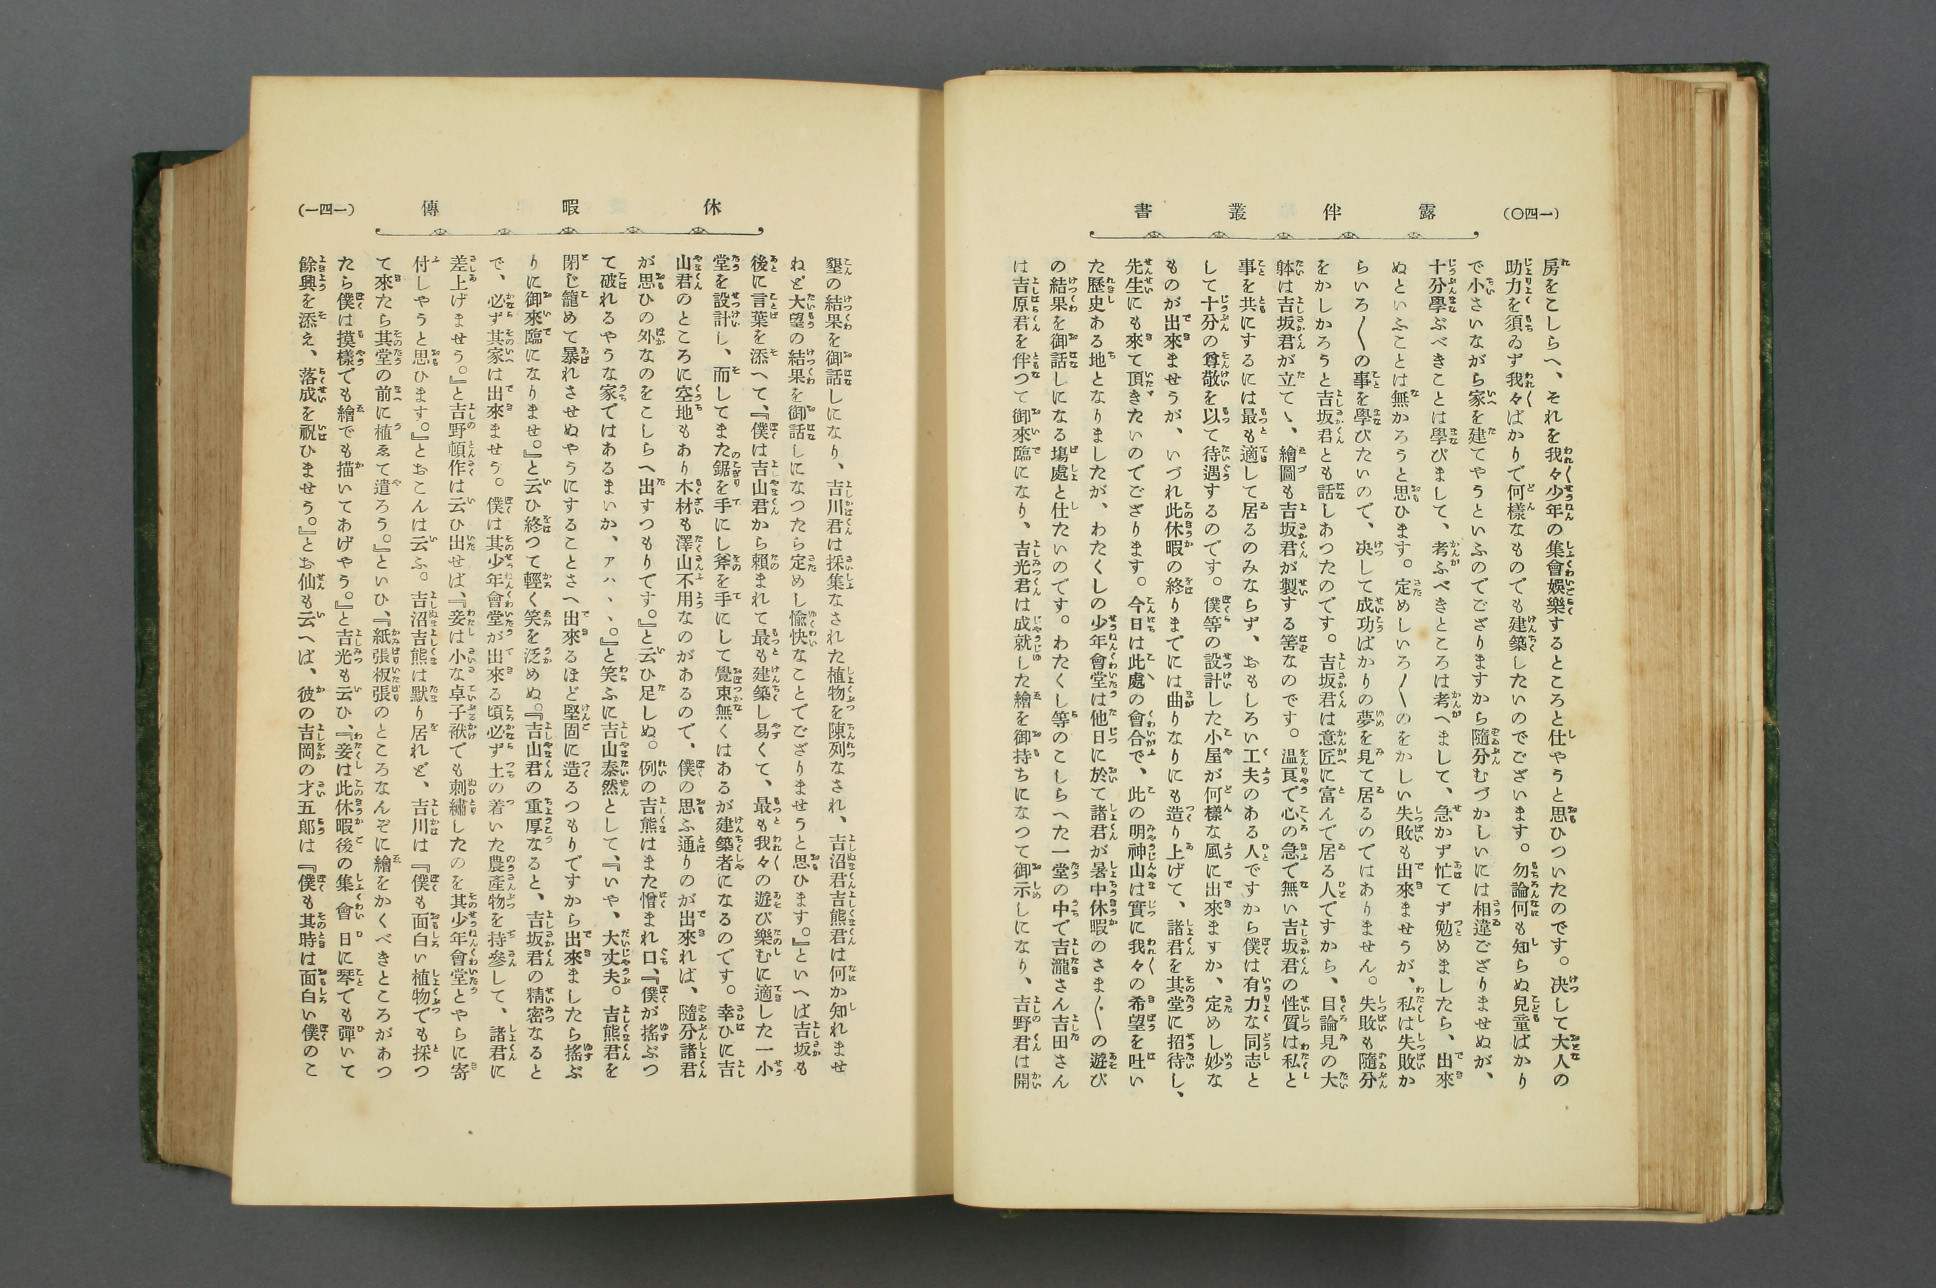 露伴叢書
(一四〇)
房をこしらへ、それを我々少年の集會娯樂するところと仕やうと思ひついたのです。決して大人の
助力を須ゐず我々ばかりで何樣なものでも建築したいのでございます。勿論何も知らぬ兒童ばかり
で小さいながら家を建てやうといふのでござりますから隨分むづかしいには相違ござりませぬが、
十分學ぶべきことは學びまして、考ふべきところは考へまして、急かず忙てず勉めましたら、出來
ぬといふことは無かろうと思ひます。定めしいろ〳〵のをかしい失敗も出來ませうが、私は失敗か
らいろ〳〵の事を學びたいので、决して成功ばかりの夢を見て居るのではありません。失敗も隨分
をかしかろうと吉坂君とも話しあつたのです。吉坂君は意匠に富んで居る人ですから、目論見の大
躰は吉坂君が立てゝ、繪圖も吉坂君が製する筈なのです。溫厚で心の急で無い吉坂君の性質は私と
事を共にするには最も適して居るのみならず、おもしろい工夫のある人ですから僕は有力な同志と
して十分の尊敬を以て待遇するのです。僕等の設計した小屋が何樣な風に出來ますか、定めし妙な
ものが出來ませうが、いづれ此休暇の終りまでには曲りなりにも造り上げて、諸君を其堂に招待し、
先生にも來て頂きたいのでござります。今日は此處の會合で、此の明神山は實に我々の希望を吐い
た歷史ある地となりましたが、わたくしの少年會堂は他日に於て諸君が暑中休暇のさま〴〵の遊び
の結果を御話しになる塲處と仕たいのです。わたくし等のこしらへた一堂の中で吉瀧さん吉田さん
は吉原君を伴つて御來臨になり、吉光君は成就した繪を御持ちになつて御示しになり、吉野君は開
休暇傳
(一四一)
墾の結果を御話しになり、吉川君は採集なされた植物を陳列なされ、吉沼君吉熊君は何か知れませ
ねど大望の結果を御話しになつたら定めし愉快なことでござりませうと思ひます。』といへば吉坂も
後に言葉を添へて、『僕は吉山君から賴まれて最も建築し易くて、最も我々の遊び樂むに適した一小
堂を設計し、而してまた鋸を手にし斧を手にして覺束無くはあるが建築者になるのです。幸ひに吉
山君のところに空地もあり木材も澤山不用なのがあるので、僕の思ふ通りのが出來れば、隨分諸君
が思ひの外なのをこしらへ出すつもりです。』と云ひ足しぬ。例の吉熊はまた憎まれ口、『僕が搖ぶつ
て破れるやうな家ではあるまいか、アハヽヽ。』と笑ふに吉山泰然として、『いや、大丈夫。吉熊君を
閉ぢ籠めて暴れさせぬやうにすることさへ出來るほど堅固に造るつもりですから出來ましたら搖ぶ
りに御來臨になりませ。』と云ひ終つて輕く笑を泛めぬ。『吉山君の重厚なると、吉坂君の精密なると
で、必ず其家は出來ませう。僕は其少年會堂が出來る頃必ず土の着いた農產物を持參して、諸君に
差上げませう。』と吉野頓作は云ひ出せば、『妾は小な卓子袱でも刺繡したのを其少年會堂とやらに寄
付しやうと思ひます。』とおこんは云ふ。吉沼吉熊は默り居れど、吉川は『僕も面白い植物でも採つ
て來たら其堂の前に植ゑて遣ろう。』といひ、『紙張板張のところなんぞに繪をかくべきところがあつ
たら僕は摸樣でも繪でも描いてあげやう。』と吉光も云ひ、『妾は此休暇後の集會日に琴でも彈いて
餘興を添え、落成を祝ひませう。』とお仙も云へば、彼の吉岡の才五郞は『僕も其時は面白い僕のこ